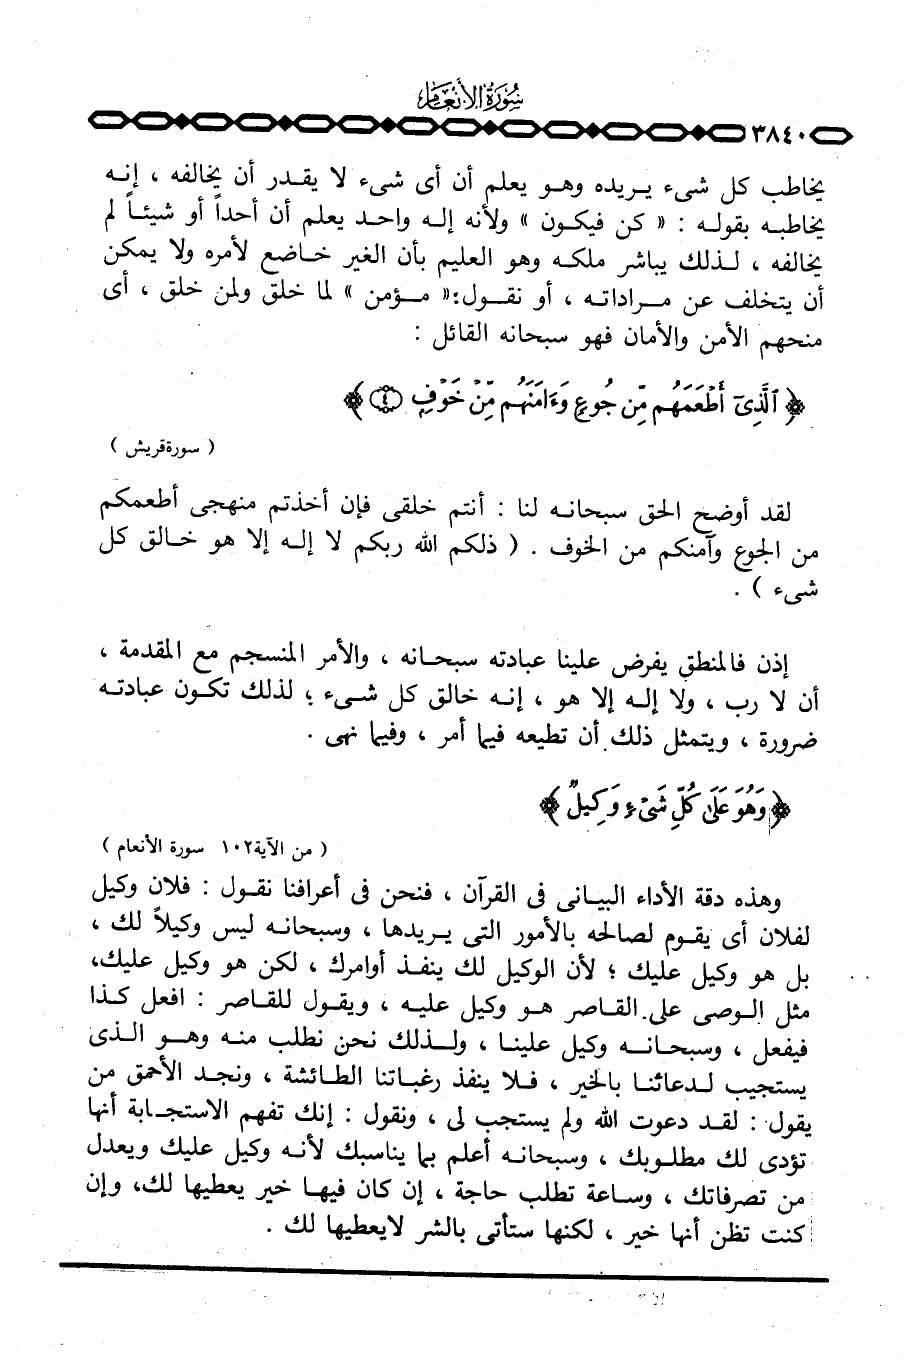 سورة الأنعام
٣٨٤٠
يخاطب كل شىء يريده وهو يعلم أن أى شىء لا يقدر أن يخالفه ، إنه
يخاطبه بقوله : « كن فيكون » ولأنه إله واحد يعلم أن أحداً أو شيئاً لم
يخالفه ، لذلك يباشر ملكه وهو العليم بأن الغير خاضع لأمره ولا يمكن
أن يتخلف عن مراداته ، أو نقول:« مؤمن » لما خلق ولمن خلق ، أى
منحهم الأمن والأمان فهو سبحانه القائل :
﴿ ٱلَّذِىٓ أَطْعَمَهُم مِّن جُوعٍ وَءَامَنَهُم مِّنْ خَوْفٍ ۝٤ ﴾
( سورة قريش )
لقد أوضح الحق سبحانه لنا : أنتم خلقى فإن أخذتم منهجى أطعمكم
من الجوع وآمنكم من الخوف . ( ذلكم الله ربكم لا إله إلا هو خالق كل
شىء ) .
إذن فالمنطق يفرض علينا عبادته سبحانه ، والأمر المنسجم مع المقدمة ،
أن لا رب ، ولا إله إلا هو ، إنه خالق كل شىء ؛ لذلك تكون عبادته
ضرورة ، ويتمثل ذلك أن تطيعه فيما أمر ، وفيما نهى .
﴿ وَهُوَ عَلَىٰ كُلِّ شَىْءٍ وَكِيلٌ ﴾
( من الآية ١٠٢ سورة الأنعام )
وهذه دقة الأداء البيانى فى القرآن ، فنحن فى أعرافنا نقول : فلان وكيل
لفلان أى يقوم لصالحه بالأمور التى يريدها ، وسبحانه ليس وكيلاً لك ،
بل هو وكيل عليك ؛ لأن الوكيل لك ينفذ أوامرك ، لكن هو وكيل عليك،
مثل الوصى على القاصر هو وكيل عليه ، ويقول للقاصر : افعل كذا
فيفعل ، وسبحانه وكيل علينا ، ولذلك نحن نطلب منه وهو الذى
يستجيب لدعائنا بالخير ، فلا ينفذ رغباتنا الطائشة ، ونجد الأحمق من
يقول : لقد دعوت الله ولم يستجب لى ، ونقول : إنك تفهم الاستجابة أنها
تؤدى لك مطلوبك ، وسبحانه أعلم بما يناسبك لأنه وكيل عليك ويعدل
من تصرفاتك ، وساعة تطلب حاجة ، إن كان فيها خير يعطيها لك، وإن
كنت تظن أنها خير ، لكنها ستأتى بالشر لايعطيها لك .